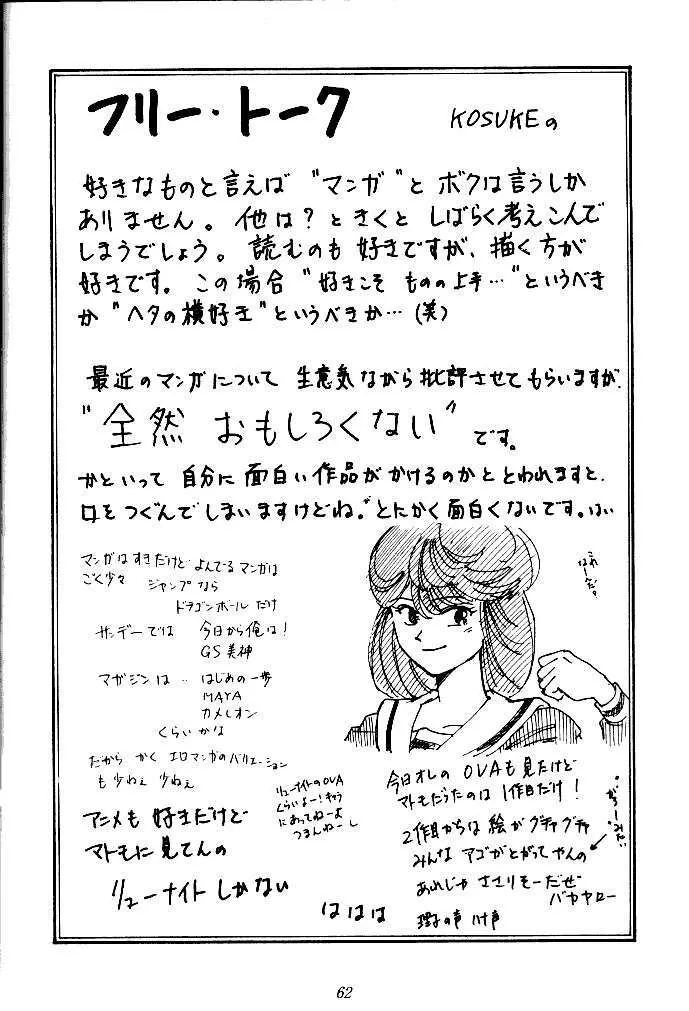 フリー・トーク
KOSUKEの
好きなものと言えば "マンガ"と ボクは言うしか
ありません。他は？ときくと しばらく考えこんで
しまうでしょう。読むのも好きですが、描く方が
好きです。この場合 "好きこそ ものの上手…"というべき
か "ヘタの横好き"というべきか…(笑)
最近のマンガについて 生意気ながら批評させてもらいますが、
"全然 おもしろくない"です。
かといって 自分に面白い作品がかけるのかととわれますと、
口をつぐんでしまいますけどね。とにかく面白くないです。はい
マンガはすきだけど よんでるマンガは
ごく少々 ジャンプなら
ドラゴンボール だけ
サンデーでは 今日から俺は！
GS美神
マガジンは … はじめの一歩
MAYA
カメレオン
くらいかな
だから かく エロマンガのバリエーション
も 少ねぇ 少ねぇ
アニメも 好きだけど
マトモに 見てんの
リューナイト しかない
リューナイトのOVA
くらいよー！キャラ
にあってねーよ
つまんねーし
今日オレの OVAも見たけど
マトモだったのは 1作目だけ！
2作目からは 絵がグチャグチャ
みんな アゴがとがってやんの
あれじゃ ささりそーだぜ
バカヤロー
理子の声
ははは
62